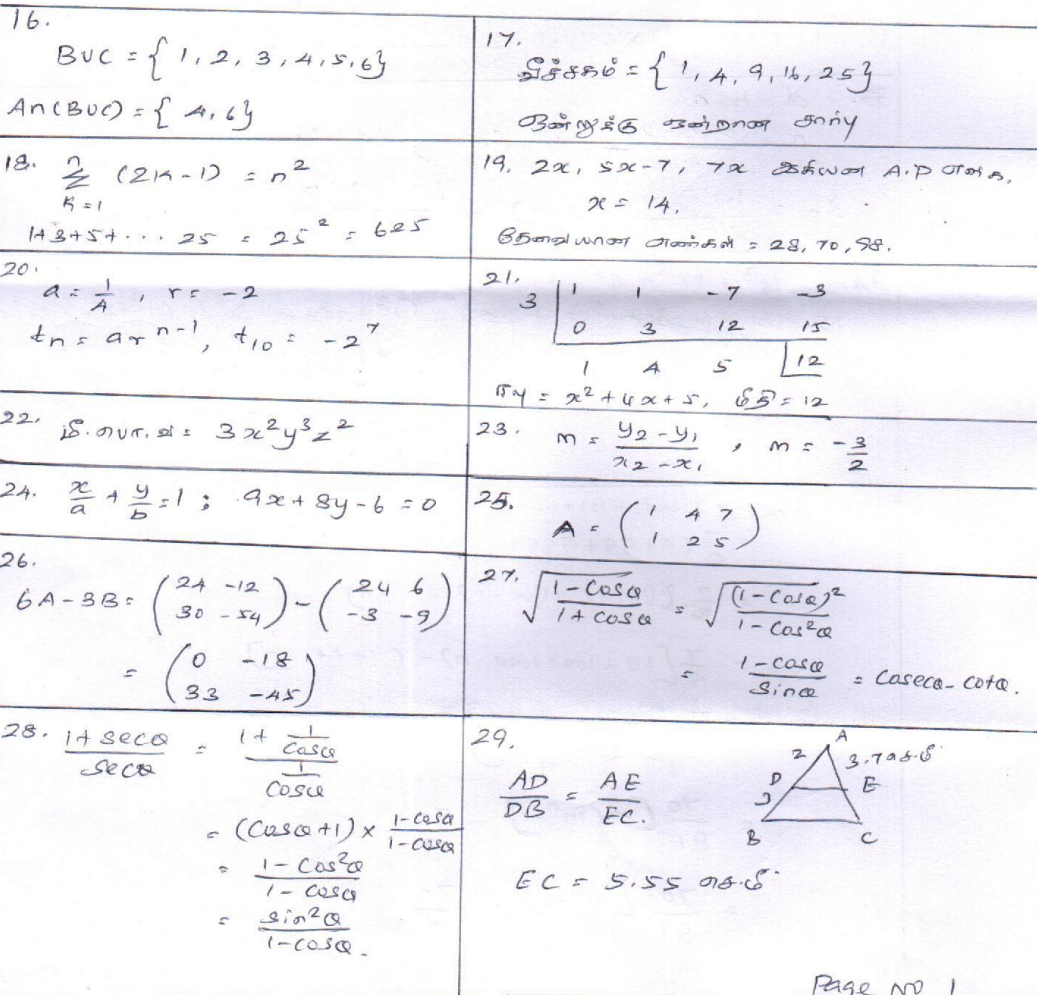 16.
B∪C = { 1, 2, 3, 4, 5, 6}
A∩(B∪C) = { 4, 6}
17.
வீச்சகம் = { 1, 4, 9, 16, 25}
ஒன்றுக்கு ஒன்றான சார்பு
18. n Σ k=1 (2k-1) = n²
1+3+5+... 25 = 25² = 625
19. 2x, 5x-7, 7x ஆகியன A.P என்க.
x = 14.
தேவையான எண்கள் = 28, 70, 98.
20.
a = 1/4, r = -2
tn = ar^n-1, t10 = -2^7
21.
3 | 1 1 -7 -3
0 3 12 15
1 4 5 | 12
ஈவு = x² + 4x + 5, மீதி = 12
22. மீ.பொ.வ = 3x²y³z²
23. m = (y2 - y1)/(x2 - x1) , m = -3/2
24. x/a + y/b = 1 ; 9x + 8y - 6 = 0
25.
A = ( 1 4 7
1 2 5 )
26.
6A - 3B = ( 24 -12
30 -54 ) - ( 24 6
-3 -9 )
= ( 0 -18
33 -45 )
27. √((1 - Cosθ)/(1 + cosθ)) = √((1 - Cosθ)²/(1 - Cos²θ))
= (1 - cosθ)/Sinθ = Cosecθ - cotθ.
28. (1 + secθ)/secθ = (1 + 1/cosθ)/(1/cosθ)
= (Cosθ + 1) × (1 - cosθ)/(1 - cosθ)
= (1 - Cos²θ)/(1 - cosθ)
= sin²θ/(1 - cosθ).
29.
AD/DB = AE/EC.
A
2
3.7 செ.மீ
D
E
3
B
C
EC = 5.55 செ.மீ
Page No 1